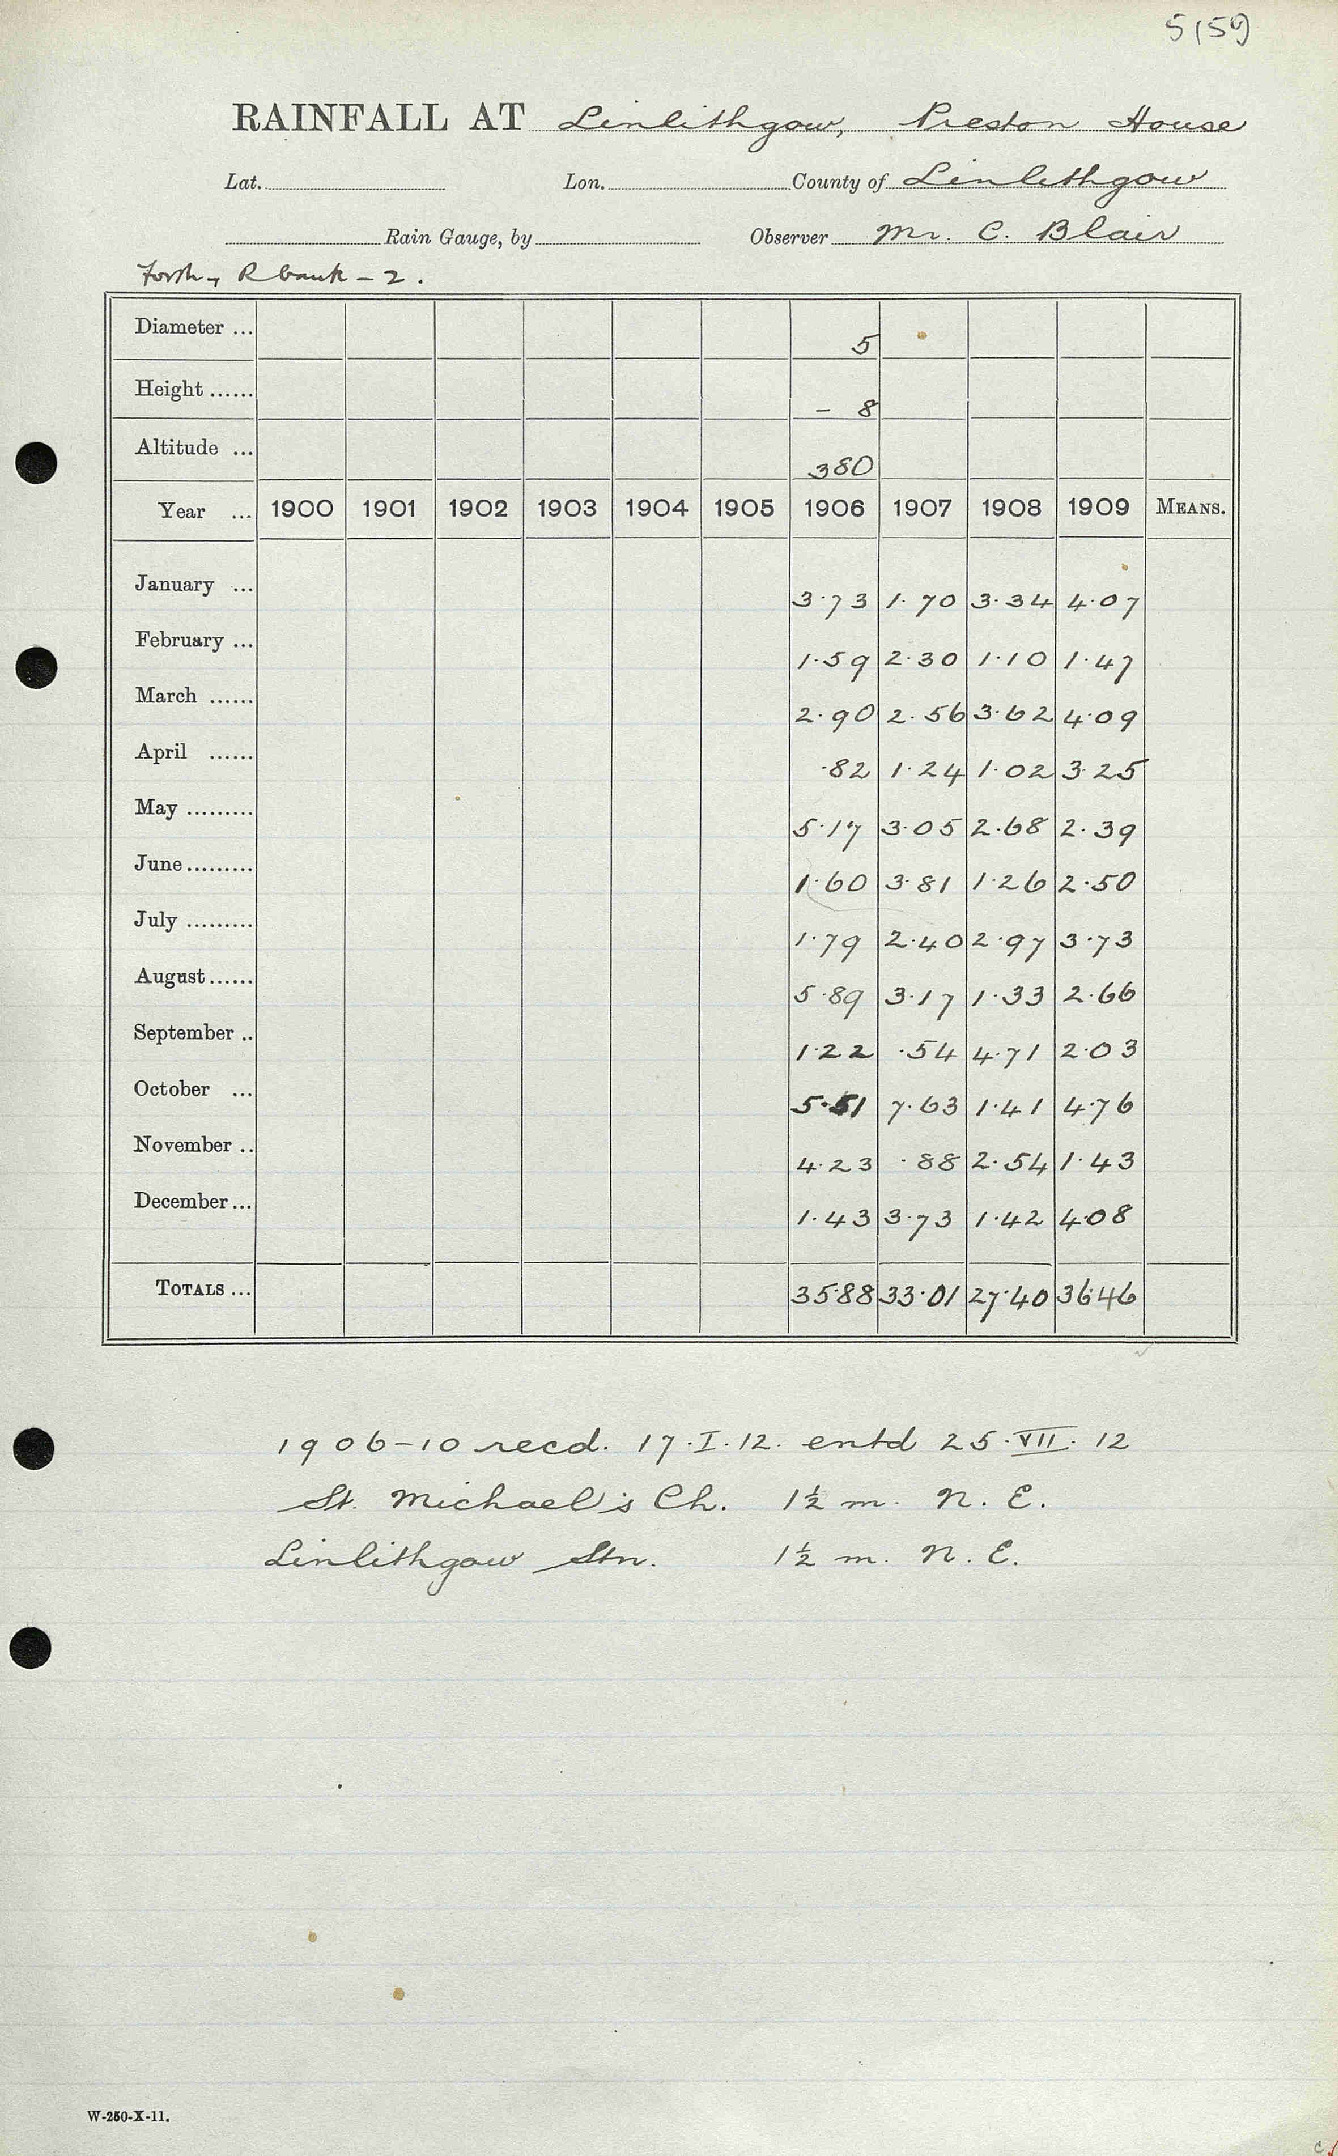 5159
RAINFALL AT Linlithgow, Preston House
Lat. Lon. County of Linlithgow
Rain Gauge, by Observer Mr. C. Blair
Forth, R bank - 2.
Diameter ... 5
Height ...... - 8
Altitude ... 380
Year ... 1900 1901 1902 1903 1904 1905 1906 1907 1908 1909 MEANS.
January ... 3.73 1.70 3.34 4.07
February ... 1.59 2.30 1.10 1.47
March ...... 2.90 2.56 3.62 4.09
April ...... .82 1.24 1.02 3.25
May ......... 5.17 3.05 2.68 2.39
June ......... 1.60 3.81 1.26 2.50
July ......... 1.79 2.40 2.97 3.73
August ...... 5.89 3.17 1.33 2.66
September .. 1.22 .54 4.71 2.03
October ... 5.51 7.63 1.41 4.76
November .. 4.23 .88 2.54 1.43
December ... 1.43 3.73 1.42 4.08
TOTALS ... 35.88 33.01 27.40 36.46
1906-10 recd. 17.I.12. entd 25.VII.12
St. Michael's Ch. 1½ m. N.E.
Linlithgow Stn. 1½ m. N.E.
W-250-X-11.